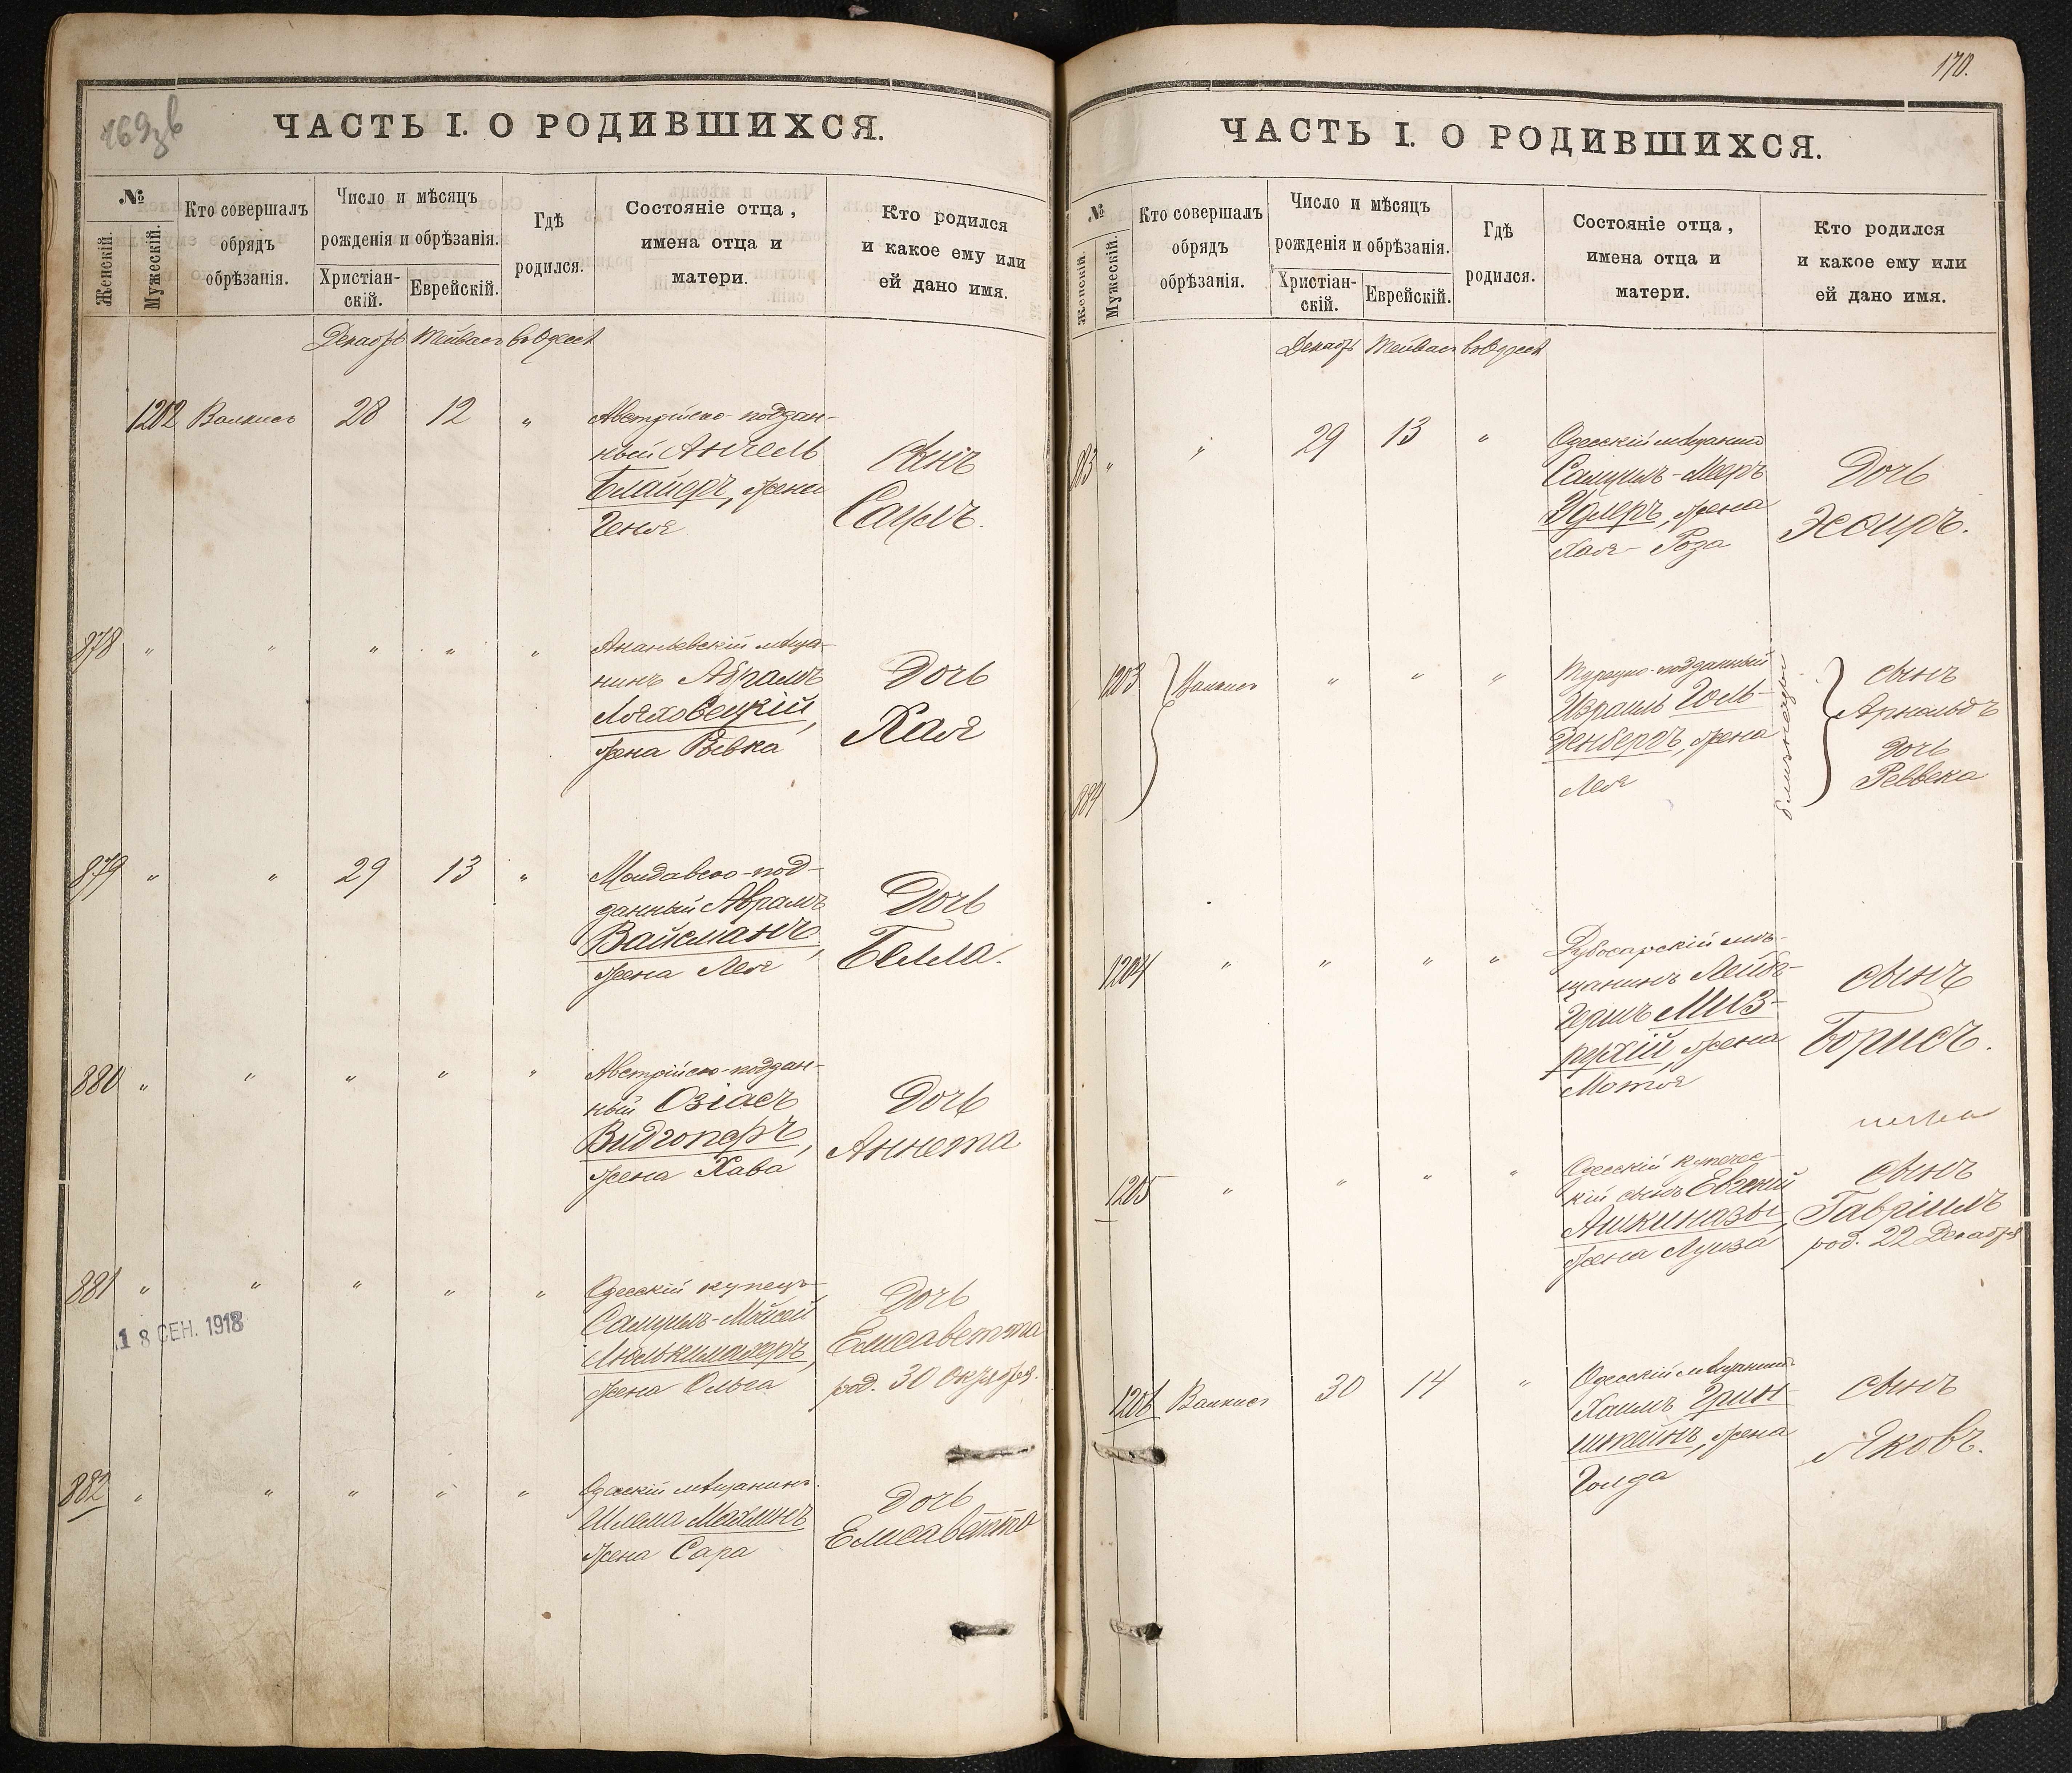 169зв
ЧАСТЬ I. О РОДИВШИХСЯ.
№
Женскій.
Мужескій.
Кто совершалъ
обрядъ
обрѣзанія.
Число и мѣсяцъ
рожденія и обрѣзанія.
Христіан-
скій.
Еврейскій.
Гдѣ
родился.
Состояніе отца,
имена отца и
матери.
Кто родился
и какое ему или
ей дано имя.
Декабрь Тейвасъ въ Одессѣ
1202 28 12 "
Австрійско-поддан-
ный Анчель
Блайеръ, жена
Геня
Сынъ
878 " " " " "
Ананьевскій мѣща-
нинъ Абрамъ
Ляховецкій,
жена Ривка
Дочь
Хая
879 " " 29 13 "
Молдавско-под-
данный Аврамъ
Вайсманъ,
жена Лея
Дочь
Белла.
880 " " " " "
Австрійско-поддан-
ный Озіасъ
жена Хава
Дочь
Аннета
881 " " " " "
Одесскій купецъ
Самуилъ-Мойсей
жена Ольга
Дочь
Елисаветта
род. 30 Октября.
18 СЕН. 1918
882 " " " " "
Одесскій мѣщанинъ
Шлема Махлинъ
жена Сара
Дочь
Елисаветта
170.
ЧАСТЬ I. О РОДИВШИХСЯ.
№
Женскій.
Мужескій.
Кто совершалъ
обрядъ
обрѣзанія.
Число и мѣсяцъ
рожденія и обрѣзанія.
Христіан-
скій.
Еврейскій.
Гдѣ
родился.
Состояніе отца,
имена отца и
матери.
Кто родился
и какое ему или
ей дано имя.
Декабрь Тейвасъ въ Одессѣ
883 " " 29 13 "
Одесскій мѣщанинъ
Самуилъ-Мееръ
жена
Хая-Роза
Дочь
Эсѳирь.
1203 " " "
884
Турецко-подданный
Израиль Голь-
денбергъ, жена
Лея
близнецы
сынъ
Арнольдъ
Дочь
Реввека
1204 " " " "
Дубосарскій мѣ-
щанинъ Лейбъ-
Гершъ Миз-
жена
Мотя
сынъ
Борисъ.
1205 " " " "
Одесскій купечес-
кій сынъ Евсей
Ашкинази
жена Луиза
сынъ
Гавріилъ
род. 22 Декабря
1206 30 14 "
Одесскій мѣщанинъ
Хаимъ Грин-
штейнъ, жена
Голда
сынъ
Яковъ.